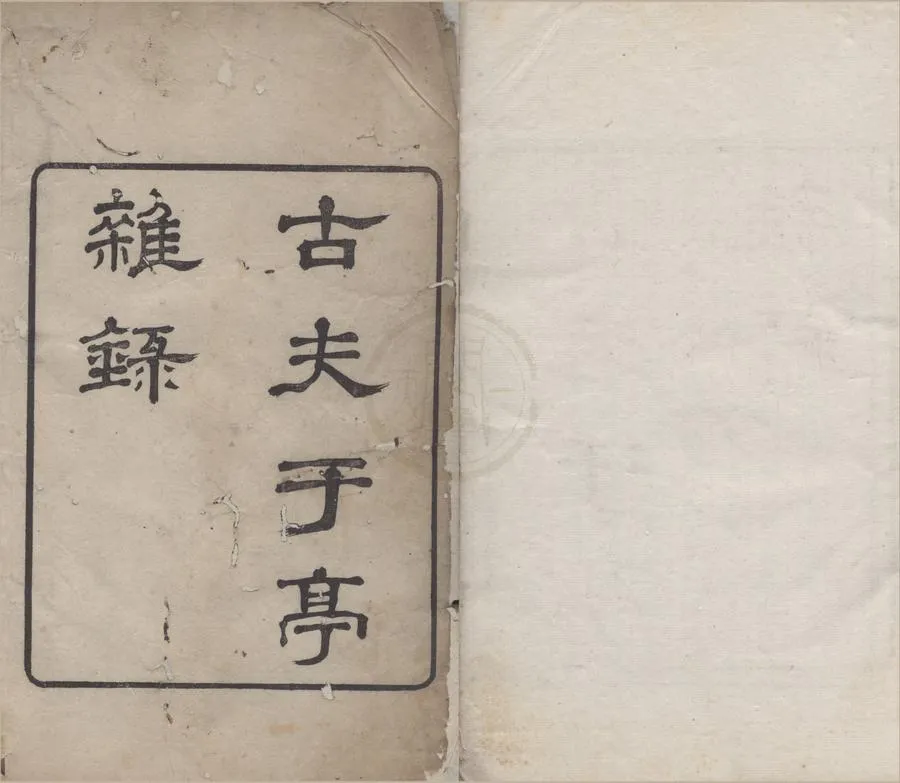 古夫于亭
雜録